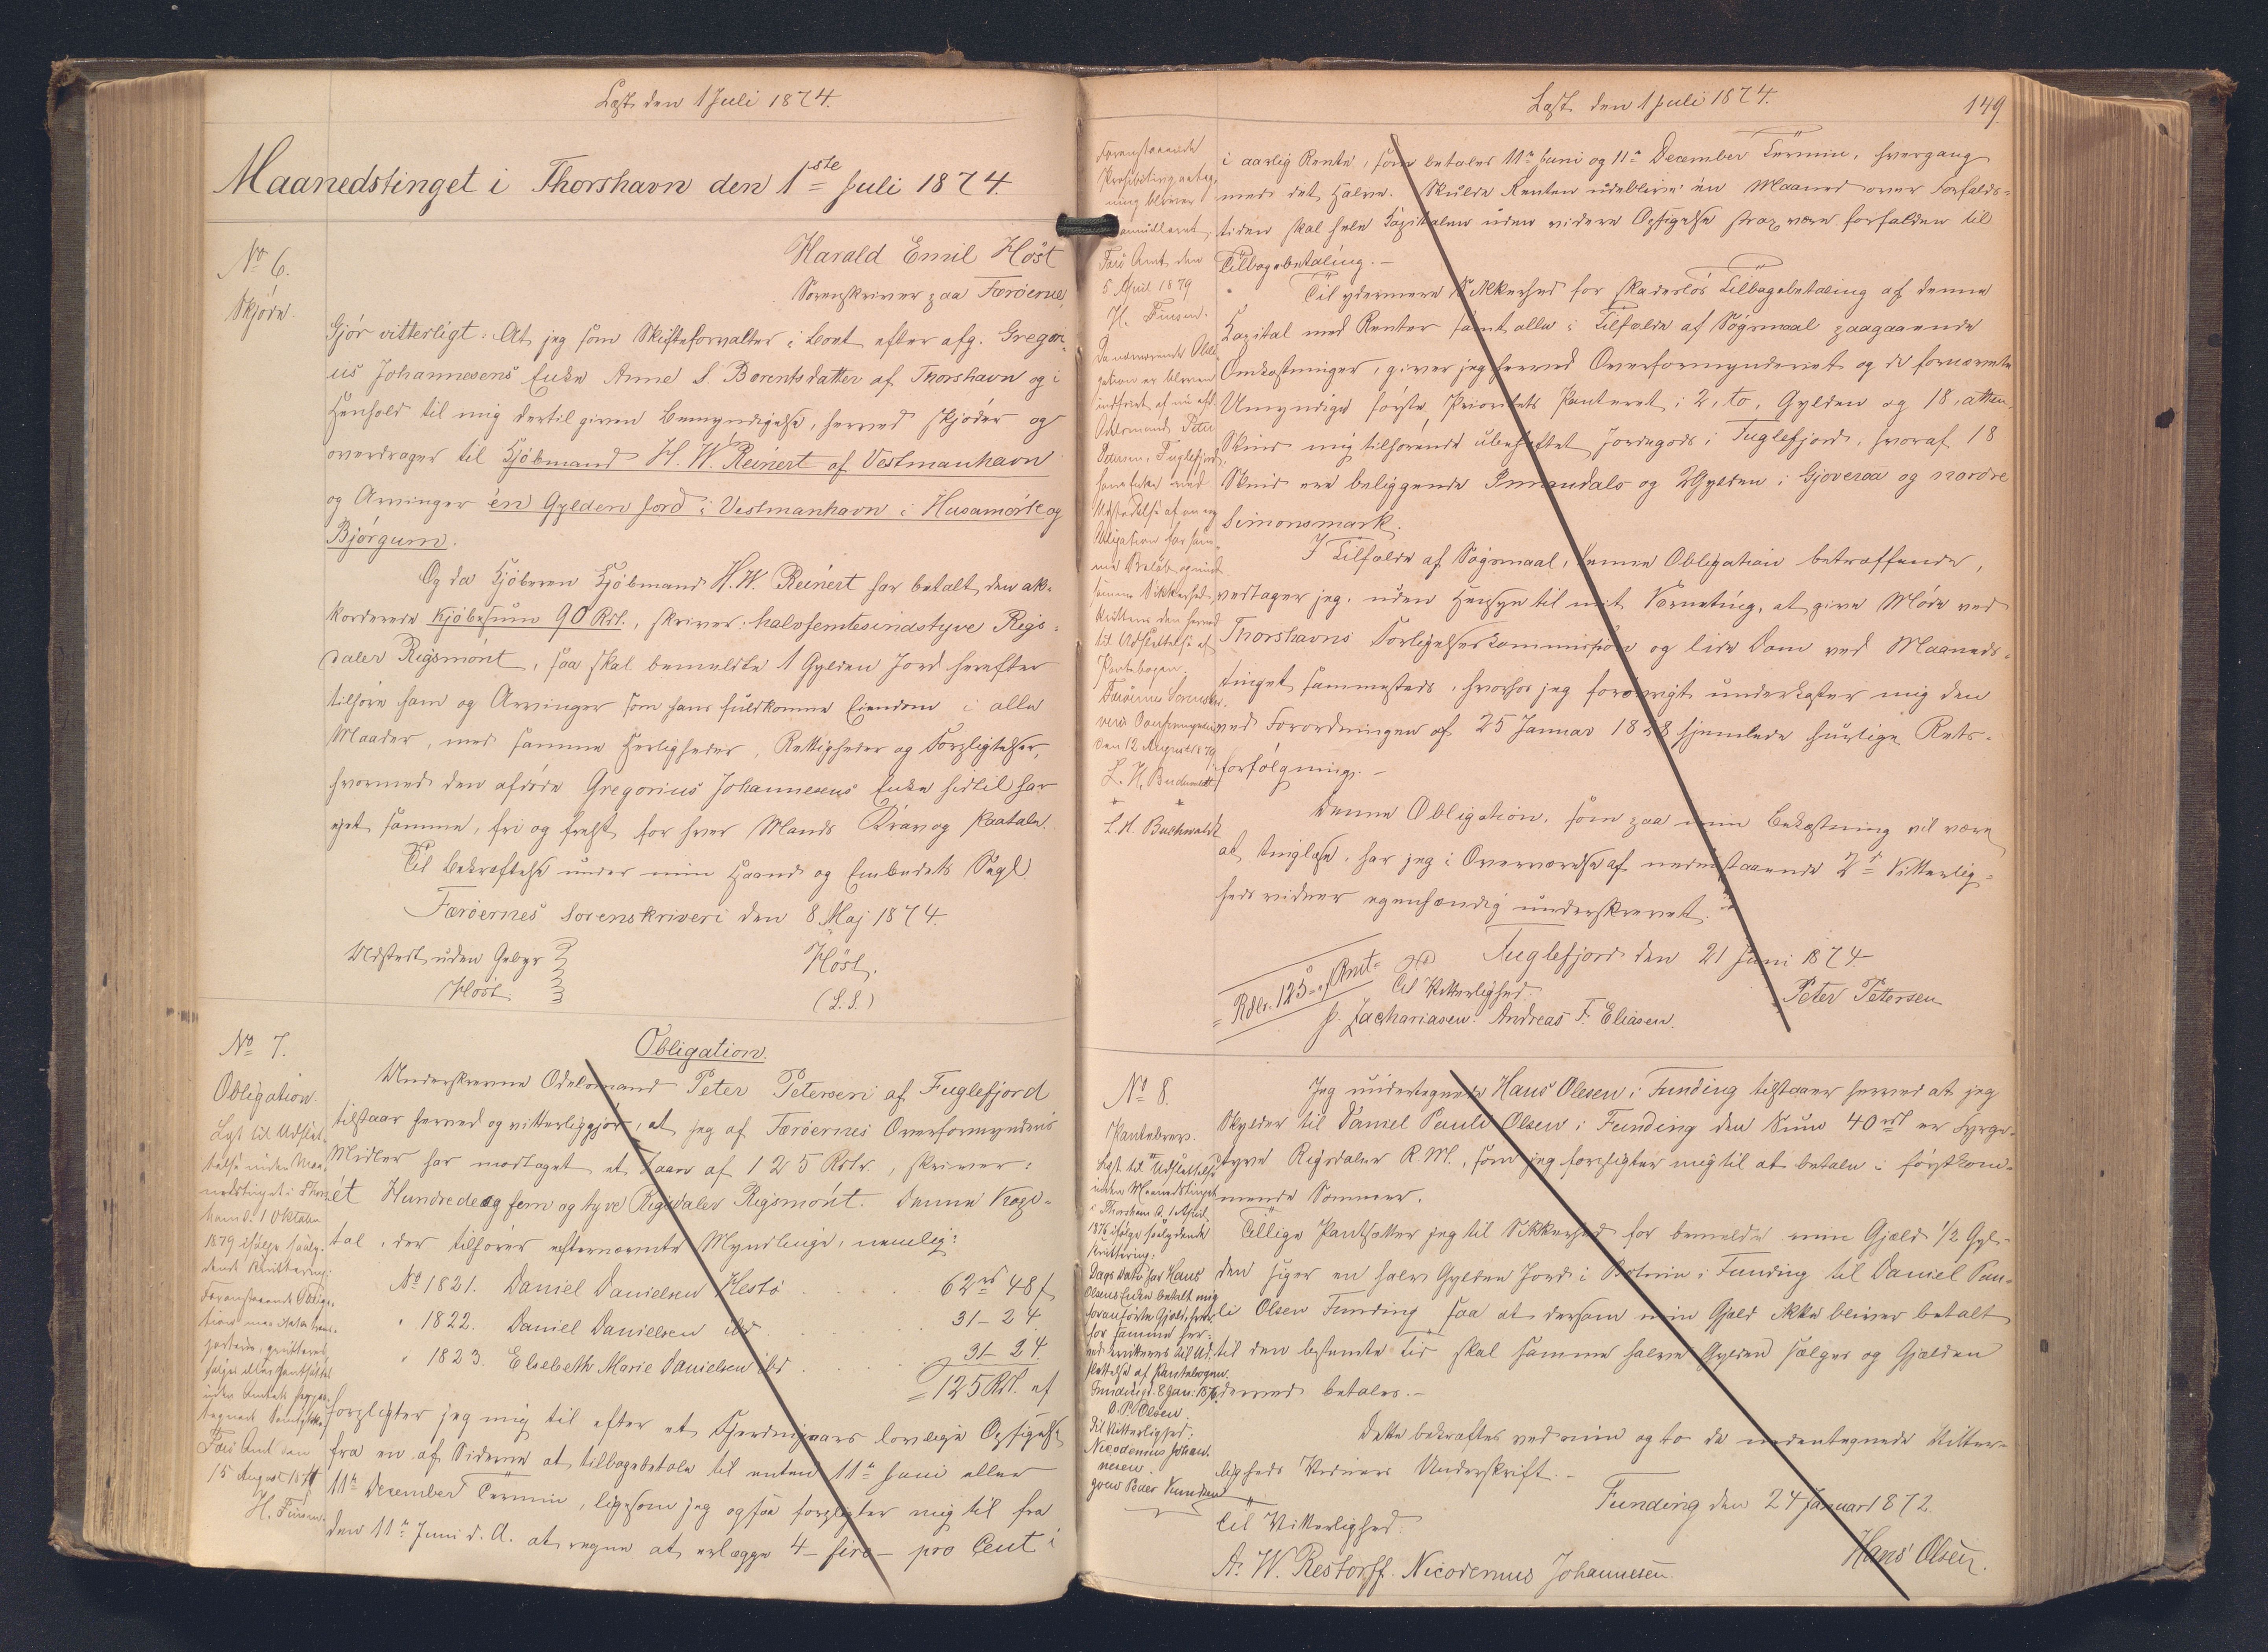 Læst den 1 Juli 1874.
Maanedstinget i Thorshavn den 1ste Juli 1874.
No 6.
Skjøde.
Harald Emil Höst
Sorenskriver paa Færøerne,
Gjør vitterligt: At jeg som Skifteforvalter i Boet efter afg. Gregori-
us Johannesens Enke Anne S. Berentsdatter af Thorshavn og i
Henhold til mig dertil given Bemyndigelse, herved skjøder og
overdrager til Kjøbmand H. W. Reinert af Vestmanhavn
og Arvinger én Gylden Jord i Vestmanhavn i Husamörk og
Bjørgum.
Og da Kjøberen Kjøbmand H. W. Reinert har betalt den ak-
korderede Kjøbesum 90 Rdl., skriver: halvfemtesindstyve Rigs-
daler Rigsmønt, saa skal bemeldte 1 Gylden Jord herefter
tilhøre ham og Arvinger som hans fuldkomne Eiendom i alle
Maader, med samme Herligheder, Rettigheder og Forpligtelser,
hvormed den afdøde Gregorius Johannesens Enke hidtil har
ejet samme, fri og frelst for hver Mands Krav og Paatale.
Til Bekræftelse under min Haand og Embedets Segl.
Færøernes Sorenskriveri den 8 Maj 1874.
Udstedt uden Gebyr
Höst.
Höst.
(L. S.)
No 7.
Obligation.
Læst til Udslet-
telse inden Maa-
nedstinget i Thors-
havn d. 1 Oktober
1879 ifølge saaly-
dende Kvittering:
Foranstaaende Obliga-
tion maa ikke trans-
porteres, qvitteres,
sælges eller pantsættes
uden Amtets paateg-
nede Samtykke.
Færø Amt den
15 August 1874
H. Finsen.
Obligation.
Underskrevne Odelsmand Peter Petersen af Fuglefjord
tilstaar herved og vitterliggjør, at jeg af Færøernes Overformynderis
Midler har modtaget et Laan af 125 Rdlr., skriver:
ét Hundrede og fem og tyve Rigsdaler Rigsmønt. Denne Kapi-
tal, der tilhører efternævnte Myndlinge, nemlig:
No 1821. Daniel Danielsen Hestø . . . . 62rd 48 s
" 1822. Daniel Danielsen ibd . . . . 31 - 24
" 1823. Elsebeth Marie Danielsen ibd . . . . 31 - 24.
= 125 Rdl.
forpligter jeg mig til efter et Fjerdingaars lovlige Opsigelse
fra en af Siderne at tilbagebetale til enten 11te Juni eller
11te December Termin, ligesom jeg ogsaa forpligter mig til fra
den 11te Juni d. A. at regne at erlægge 4 - fire - pro Cent i
Læst den 1 Juli 1874.
149
Foranstaaende
Prohibitivpaateg-
ning bliver
annulleret.
Færø Amt den
5 April 1879
H. Finsen.
Da nærværende Obli-
gation er bleven
indfriet af nu afd.
Odelsmand Peter
Petersen, Fuglefjord,
hans Enke ved
Udstedelse af en ny
Obligation for sam-
me Beløb og mod
samme Sikkerhed,
kvitteres den herved
til Udslettelse af
Pantebogen.
Færøernes Sorenskri-
veri
den 12 August 1879.
L. H. Buchwaldt
L. H. Buchwaldt
i aarlig Rente, som betales 11te Juni og 11te December Termin, hvergang
med det Halve. Skulde Renten udeblive én Maaned over Forfalds-
tiden skal hele Kapitalen uden videre Opsigelse strax være forfalden til
Tilbagebetaling. -
Til ydermere Sikkerhed for skadesløs Tilbagebetaling af denne
Kapital med Renter samt alle i Tilfælde af Søgsmaal paagaaende
Omkostninger, giver jeg herved Overformynderiet og de fornævnte
Umyndige første Prioritets Panteret i 2, to, Gylden og 18, atten,
Skind mig tilhørende ubehæftet Jordegods i Fuglefjord, hvoraf 18
Skind ere beliggende Innandals og 2 Gylden i Gjoveraa og nordre
Simonsmark.
I Tilfælde af Søgsmaal, denne Obligation betræffende,
vedtager jeg, uden Hensyn til mit Værneting, at give Møde ved
Thorshavns Forligelseskommission og lide Dom ved Maaneds-
tinget sammesteds, hvorhos jeg forøvrigt underkaster mig den
ved Forordningen af 25 Januar 1828 hjemlede hurtige Rets-
forfølgning. -
Denne Obligation, som paa min Bekostning vil være
at tinglæse, har jeg i Overværelse af nedenstaaende 2de Vitterlig-
heds vidner egenhændig underskrevet.
Fuglefjord den 21 Juni 1874.
Peter Petersen
= Rdlr. 125 = Rmt =
Til Vitterlighed:
P. Zachariasen. Andreas F. Eliasen.
No 8.
Pantebrev.
Læst til Udslettelse
inden Maanedstinget
i Thorshavn d. 1 April
1876 ifølge saalydende
Kvittering:
Dags Dato har Hans
Olsens Enke betalt mig
foranførte Gjæld, hvor-
for samme her-
ved kvitteres til Ud-
slettelse af Pantebogen.
Funding d. 8 Jan. 1876.
D. P. Olsen.
Til Vitterlighed:
Nicodemus Johan-
nesen.
Joen Peder
Jeg undertegnede Hans Olesen i Funding tilstaaer herved at jeg
Skylder til Daniel Pauli Olsen i Funding den Sum 40 rdl er Fyrge-
tyve Rigsdaler R. M., som jeg forpligter mig til at betale i førstkom-
mende Sommer.
Tillige Pantsætter jeg til Sikkerhed for bemeldte min Gjæld 1/2 Gyl-
den siger en halv Gylden Jord i Botnin i Funding til Daniel Pau-
li Olsen Funding, saa at dersom min Gjæld ikke bliver betalt
til den bestemte Tid skal samme halve Gylden sælges og Gjælden
dermed betales. -
Dette bekræftes ved min og to de nedentegnede Vitter-
ligheds Vidners Underskrift. -
Funding den 24 Januar 1872.
Hans Olsen.
Til Vitterlighed:
A. W. Restorff. Nicodemus Johannesen.